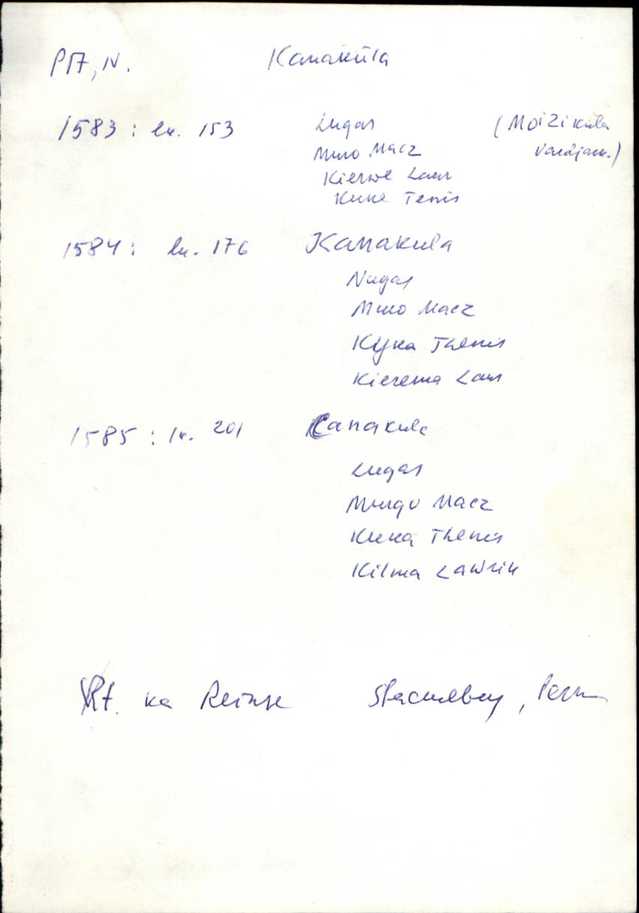 PM, N. Kanaküla
1583: lk. 153 Lugas (Moiziküla
Muro Macz varajam.)
Kierwe Laur
Kune Tenis
1584: lk. 176 Kanakula
Nugas
Muro Macz
Kyna Thenis
Kierema Laur
1585: lk. 201 Canakule
Lugas
Murgo Macz
Kuna Thenis
Kilma Lawrin
Vt. ka Reinse